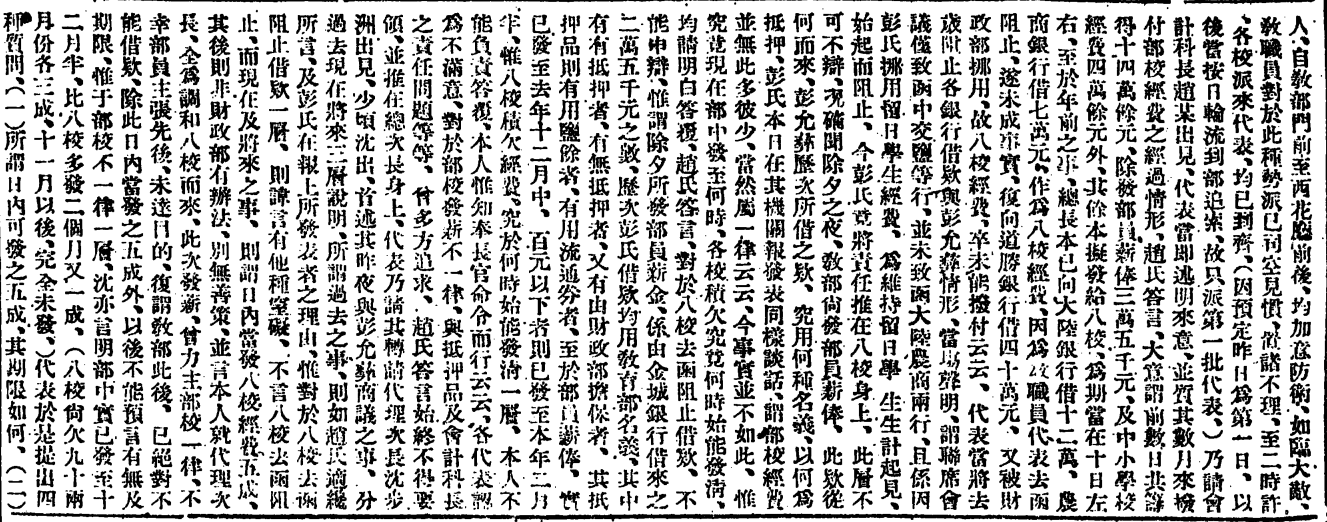 人、自敎部門前至西花廳前後、均加意防衛、如臨大敵、
敎職員對於此種勢派已司空見慣、置諸不理、至二時許
、各校派來代表、均已到齊、(因預定昨日爲第一日、以
後當按日輪流到部追索、故只派第一批代表、)乃請會
計科長趙某出見、代表當卽述明來意、並質其數月來機
付部校經費之經過情形、趙氏答言、大意謂前數日共籌
得十四萬餘元、除發部員薪俸三萬五千元、及中小學校
經費四萬餘元外、其餘本擬發給八校、爲期當在十日左
右、至於年前之事、總長本已向大陸銀行借十二萬、農
商銀行借七萬元、作爲八校經費、因爲敎職員代表去函
阻止、遂未成事實、復向道勝銀行借四十萬元、又被財
政部挪用、故八校經費、卒未能撥付云云、代表當將去
歲阻止各銀行借欵與彭允彝情形、當場聲明、謂聯席會
議僅致函中交鹽等行、並未致函大陸農商兩行、且係因
彭氏挪用留日學生經費、爲維持留日學生生計起見、
始起而阻止、今彭氏竟將責任推在八校身上、此層不
可不辯、况確聞除夕之夜、敎部尙發部員薪俸、此欵從
何而來、彭允彝歷次所借之欵、究用何種名義、以何爲
抵押、彭氏本日在其機關報發表同樣談話、謂部校經費
並無此多彼少、當然屬一律云云、今事實並不如此、惟
究竟現在部中發至何時、各校積欠究竟何時始能發淸、
均請明白答覆、趙氏答言、對於八校去函阻止借欵、不
能申辯、惟謂除夕所發部員薪金、係由金城銀行借來之
二萬五千元之數、歷次彭氏借欵均用敎育部名義、其中
有有抵押者、有無抵押者、又有由財政部擔保者、其抵
押品則有用鹽餘者、有用流通券者、至於部員薪俸、實
已發至去年十二月中、百元以下者則已發至本年二月
半、惟八校積欠經費、究於何時始能發淸一層、本人不
能負責答覆、本人惟知奉長官命令而行云云、各代表認
爲不滿意、對於部校發薪不一律、與抵押品及會計科長
之責任問題等等、曾多方追求、趙氏答言始終不得要
領、並推在總次長身上、代表乃請其轉請代理次長沈步
洲出見、少頃沈出、首述其昨夜與彭允彝商議之事、分
過去現在將來三層說明、所謂過去之事、則如趙氏適纔
所言、及彭氏在報上所發表者之理由、惟對於八校去函
阻止借欵一層、則諱言有他種窒礙、不言八校去函阻
止、而現在及將來之事、則謂日內當發八校經費五成、
其後則非財政部有辦法、別無善策、並言本人就代理次
長、全爲調和八校而來、此次發薪、曾力主部校一律、不
幸部員主張先後、未達目的、復謂敎部此後、已絕對不
能借欵、除此日內當發之五成外、以後不能預言有無及
期限、惟于部校不一律一層、沈亦言明部中實已發至十
二月半、比八校多發二個月又一成、(八校尙欠九十兩
月份各三成、十一月以後、完全未發、)代表於是提出四
種質問、(一)所謂日內可發之五成、其期限如何、(二)